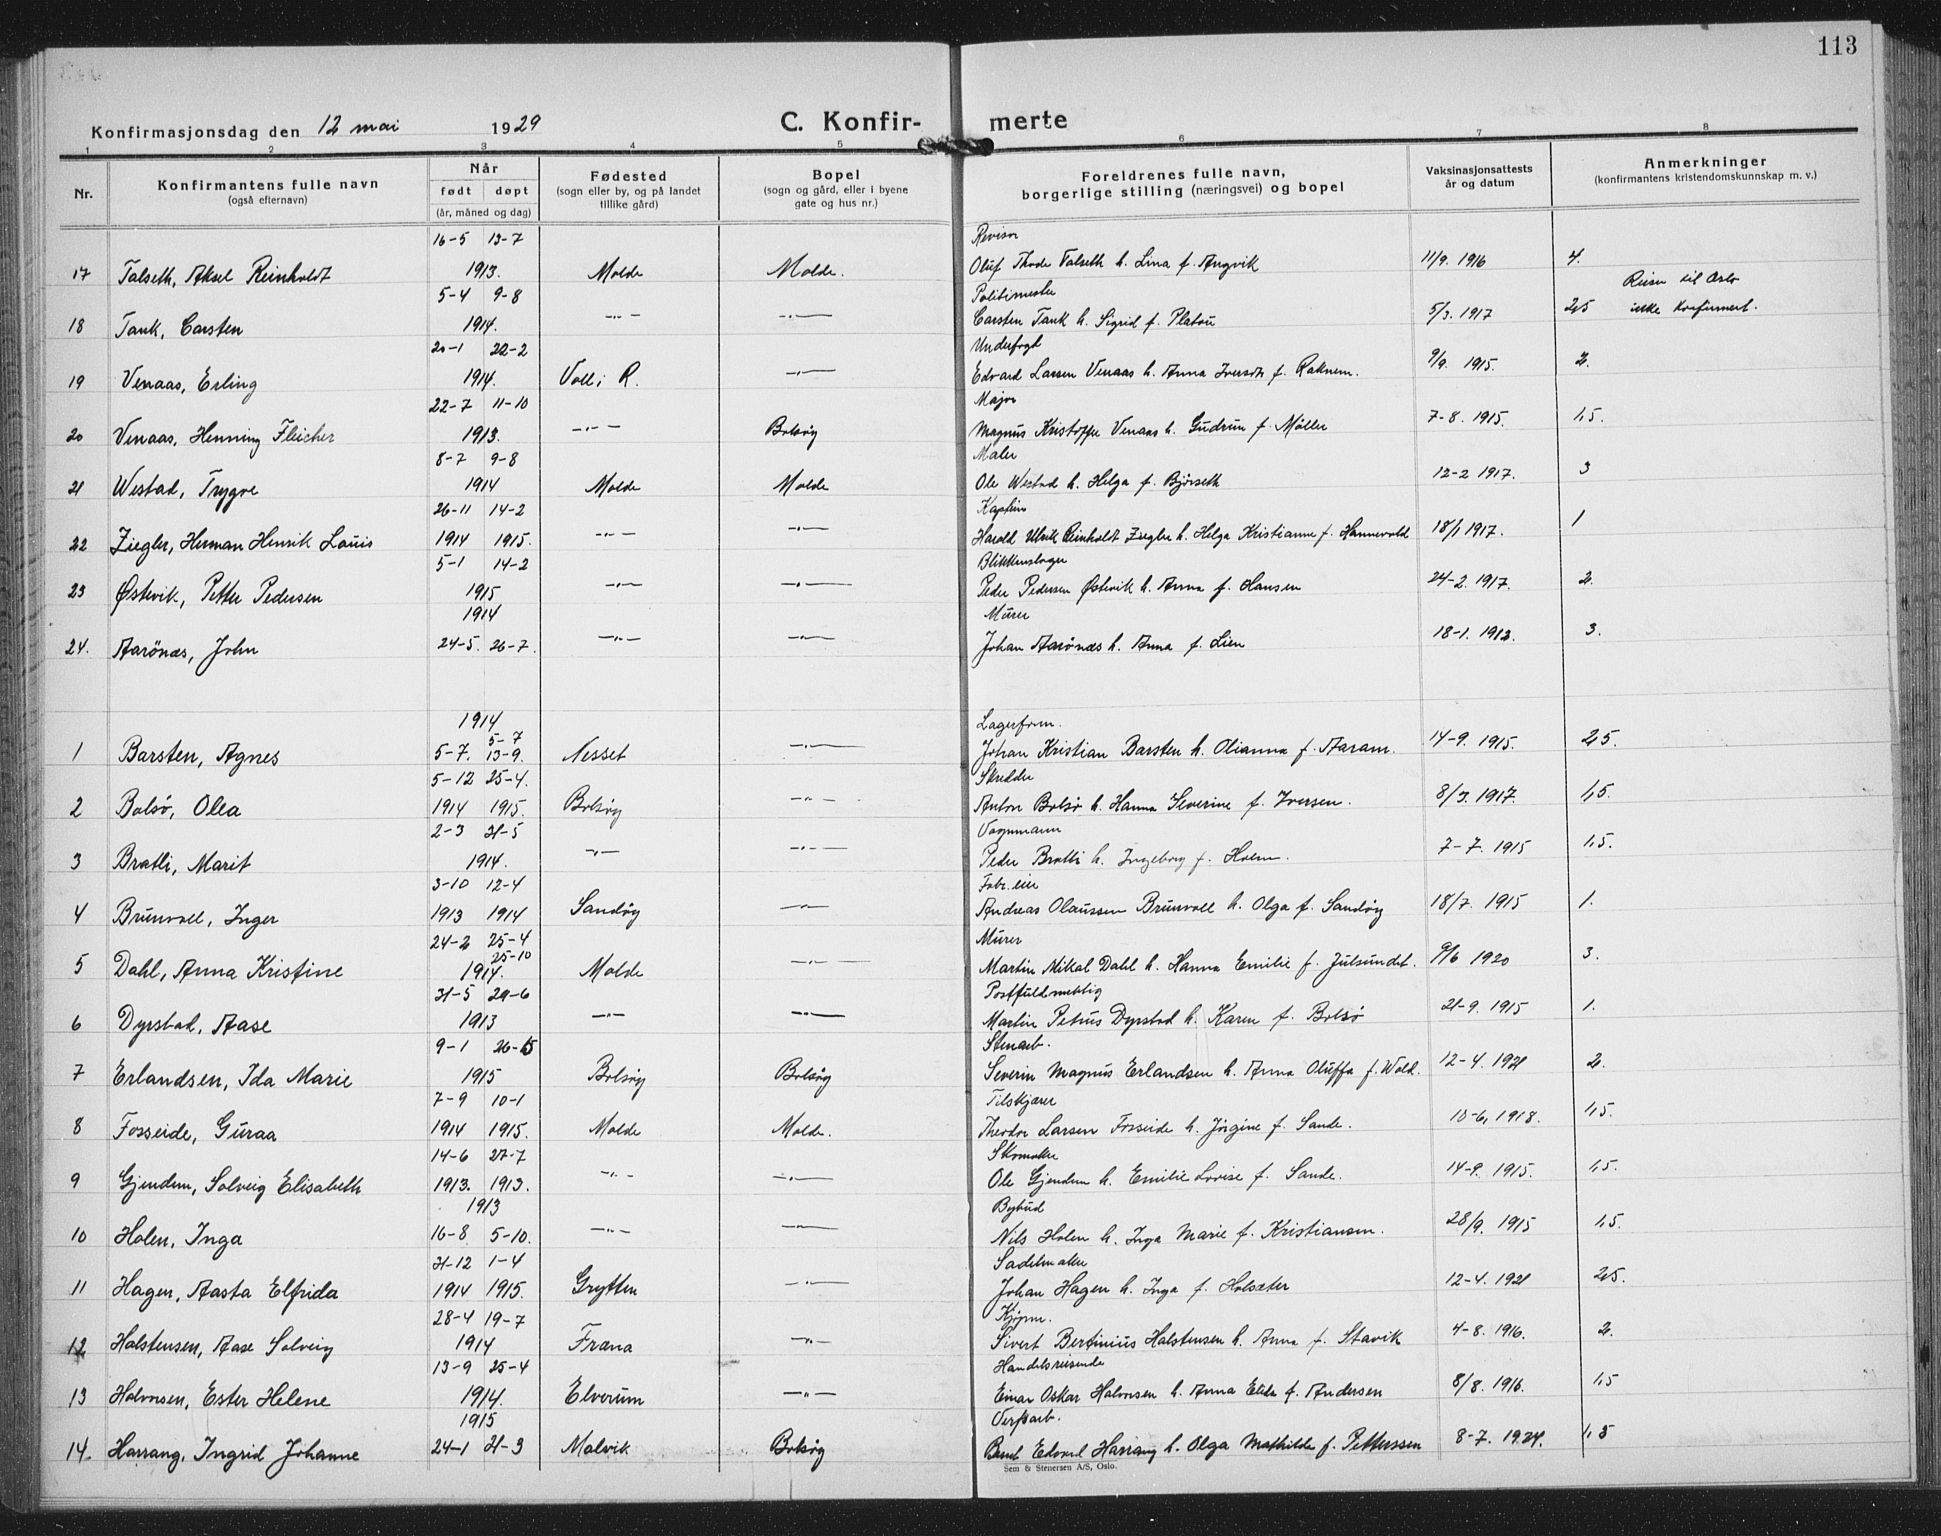 113
Konfirmasjonsdag den 12 mai 1929 C. Konfir- merte
1 2 3 4 5 6 7 8
Nr. Konfirmantens fulle navn (også efternavn) Når født døpt (år, måned og dag) Fødested (sogn eller by, og på landet tillike gård) Bopel (sogn og gård, eller i byene gate og hus nr.) Foreldrenes fulle navn, borgerlige stilling (næringsvei) og bopel Vaksinasjonsattests år og datum Anmerkninger (konfirmantens kristendomskunnskap m. v.)
16-5 13-7 Revisor
17 Talseth, Aksel Reinholdt 1913. Molde Molde. Oluf Thode Talseth h. Lina f. Angvik 11/9. 1916 4.
5-4 9-8 Politimester Reise til Oslo
18 Tank, Carsten 1914. -"- -"- Carsten Tank h. Sigrid f. Platou 5/3. 1917 2,5 ikke konfirmert.
20-1 22-2 Underfogd
19 Venaas, Erling 1914. Voll i R. -"- Edvard Larsen Venaas h. Anna Iversdt f. Raknem. 9/9. 1915. 2.
22-7 11-10 Major
20 Venaas, Henning Fleicher 1913. -"- Bolsøy Magnus Kristoffer Venaas h. Gudrun f. Møller 7-8. 1915. 1,5.
8-7 9-8 Maler
21 Westad, Trygve 1914 Molde Molde Ole Westad h. Helga f. Bjørseth 12-2 1917. 3
26-11 14-2 Kaptein
22 Ziegler, Herman Henrik Louis 1914 1915. -"- -"- Harald Ulrik Reinholdt Ziegler h. Helga Kristianne f. Hannevold 18/1 1917. 1
5-1 14-2 Blikkenslager
23 Østevik, Petter Pedersen 1915 -"- -"- Peder Pedersen Østevik h. Anna f. Hansen 24-2. 1917. 2.
1914 Murer
24. Aarönæs, John 24-5. 26-7. -"- -"- Johan Aarønæs h. Anna f. Lien 18-1. 1913. 3.
1914 Lagerform.
5-7
1 Barsten, Agnes 5-7. 13-9. Nesset -"- Johan Kristian Barsten h. Olianna f. Aaram. 14-9. 1915. 2,5.
5-12 25-4. Skredder
2 Bolsø, Olea 1914 1915. Bolsøy -"- Anton Bolsø h. Hanna Severine f. Iversen. 8/3. 1917. 1,5.
2-3 31-5 Vognmann
3 Bratli, Marit 1914. -"- -"- Peder Bratli h. Ingeborg f. Holm. 7-7. 1915 1,5.
3-10 12-4 Fabr.eier
4 Brunvoll, Inger 1913 1914 Sandøy -"- Andreas Olaussen Brunvoll h. Olga f. Sandøy 18/7. 1915 1.
24-2 25-4 Murer
25-10
5 Dahl, Anna Kristine 1914. Molde -"- Martin Mikal Dahl h. Hanna Emilie f. Julsundet. 9/6 1920 3.
31-5 29-6 Postfuldmektig
6 Dyrstad, Aase 1913 -"- -"- Martin Petrus Dyrstad h. Karen f. Bolsø 21-9. 1915 1.
9-1 Stenarb.
7 Erlandsen, Ida Marie 1915 Bolsøy Bolsøy Severin Magnus Erlandsen h. Anna Oluffa f. Wold. 12-4. 1921 2.
7-9 10-1
8 Fosseide, Guraa 1914 1915. Molde Molde. Theodor Larsen Fosseide h. Jørgine f. Sande. 10-6, 1918. 1,5.
14-6 27-7 Skomaker
9 Gjendem, Solveig Elisabeth 1913. 1913. -"- -"- Ole Gjendem h. Emilie Lovise f. Sande. 14-9. 1915. 1,5.
1913 Bybud
10 Holen, Inga 16-8 5-10. -"- -"- Nils Holen h. Inga Marie f. Kristiansen. 28/9. 1915 1,5.
31-12 1-4 Sadelmaker
11 Hagen, Aasta Elfrida 1914 1915. Grytten -"- Johan Hagen h. Inga f. Holsæter 12-4. 1921 2,5.
28-4 19-7 Kjøpm.
12 Halstensen, Aase Solveig 1914 Fræna -"- Sivert Bertinius Halstensen h. Anna f. Stavik 4-8. 1916. 2.
13-9 25-4 Handelsreisende
13 Halvorsen, Ester Helene 1914. Elverum -"- Einar Oskar Halvorsen h. Anna f. Andersen 8/8. 1916. 1,5
1915 Verftarb.
14. Harrang, Ingrid Johanne 24-1 21-3 Malvik Bolsøy Edvard Harrang h. Olga Mathilde f. Petterssen 8-7. 1924. 1,5
Sem & Stenersen A/S, Oslo.